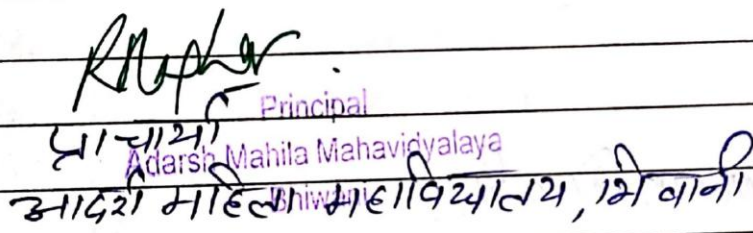 Principal
प्राचार्या
Adarsh Mahila Mahavidyalaya
Bhiwani
आदर्श महिला महाविद्यालय, भिवानी